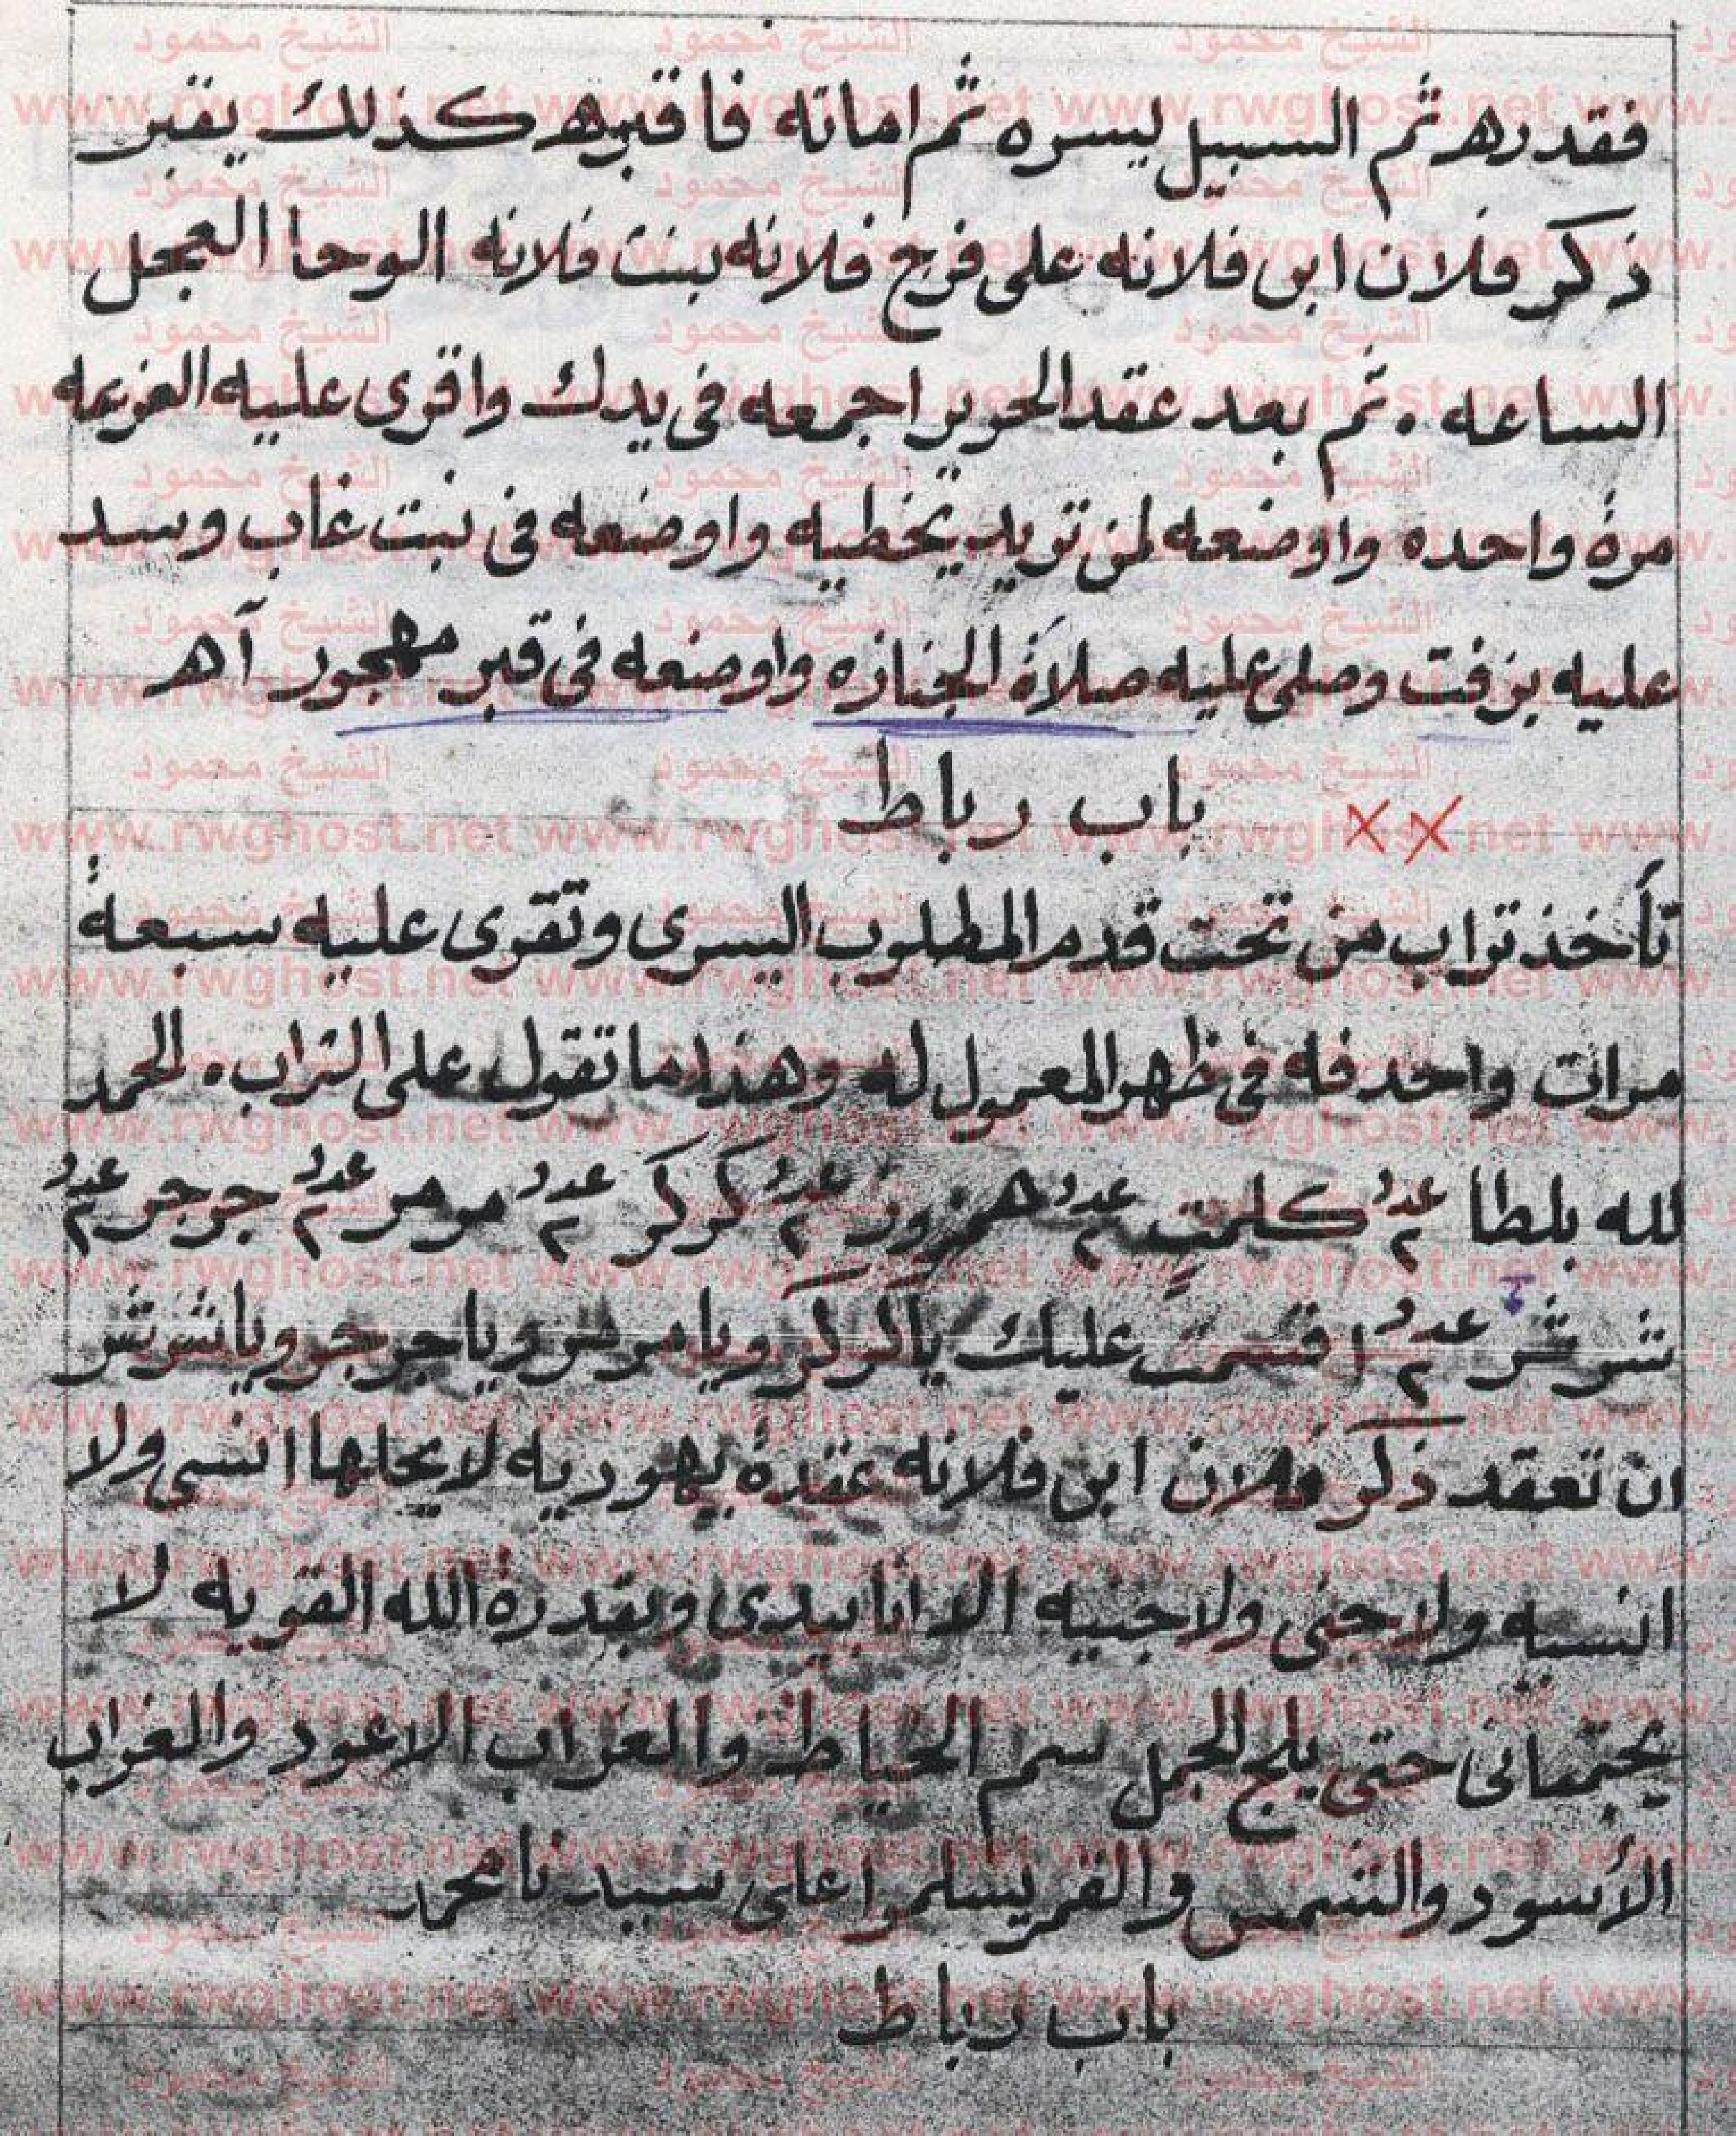 فقدره ثم السبيل يسره ثم اماته فاقبره كذلك يقبر
ذكر فلان ابن فلانه على فرج فلانه بنت فلانه الوحا العجل
الساعه . ثم بعد عقد الحرير اجمعه فى يدك واقرى عليه العزيمه
مرة واحده واوضعه لمن تريد يخطيه واوضعه فى نبت غاب وسد
عليه بزفت وصلى عليه صلاة الجنازه واوضعه فى قبر مهجور آه
باب رباط
تأخذ تراب من تحت قدم المطلوب اليسرى وتقرى عليه سبعة
مرات واحدفه فى ظهر المعمول له وهذا ما تقول على التراب . الحمد
لله بلطا عدد ٢ كلمت عدد ٢ عدد ٢ كركر عدد ٢ مرمر عدد ٢ جرجر عدد ٢
شرشر عدد ٢ اقسمت عليك ياكركر ويامرمر وياجرجر وياشرشر
ان تعقد ذكر فلان ابن فلانه عقدة يهوديه لا يحلها انسى ولا
انسيه ولا جنى ولا جنيه الا انا بيدى وبقدرة الله القويه لا
يجتمعانى حتى يلج الجمل سم الخياط والغراب الاعور والغراب
الأسود والشمس والقمر يسلموا على سيدنا محمد
باب رباط
الشيخ محمود
www.rwghost.net